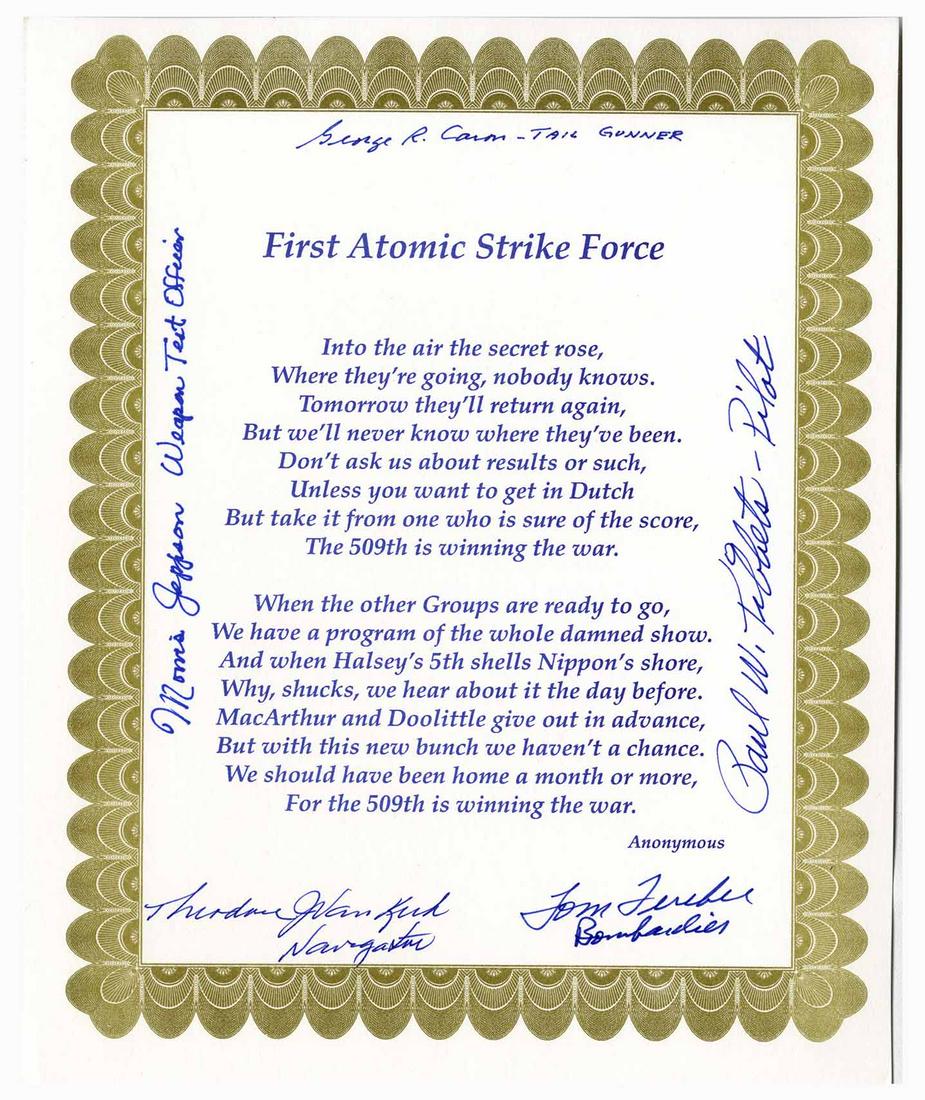 George R. Caron - TAIL GUNNER
First Atomic Strike Force
Into the air the secret rose,
Where they're going, nobody knows.
Tomorrow they'll return again,
But we'll never know where they've been.
Don't ask us about results or such,
Unless you want to get in Dutch
But take it from one who is sure of the score,
The 509th is winning the war.
When the other Groups are ready to go,
We have a program of the whole damned show.
And when Halsey's 5th shells Nippon's shore,
Why, shucks, we hear about it the day before.
MacArthur and Doolittle give out in advance,
But with this new bunch we haven't a chance.
We should have been home a month or more,
For the 509th is winning the war.
Anonymous
Morris Jeppson Weapon Test Officer
Paul W. Tibbets - Pilot
Theodore J Van Kirk
Navigator
Tom Ferebee
Bombardier